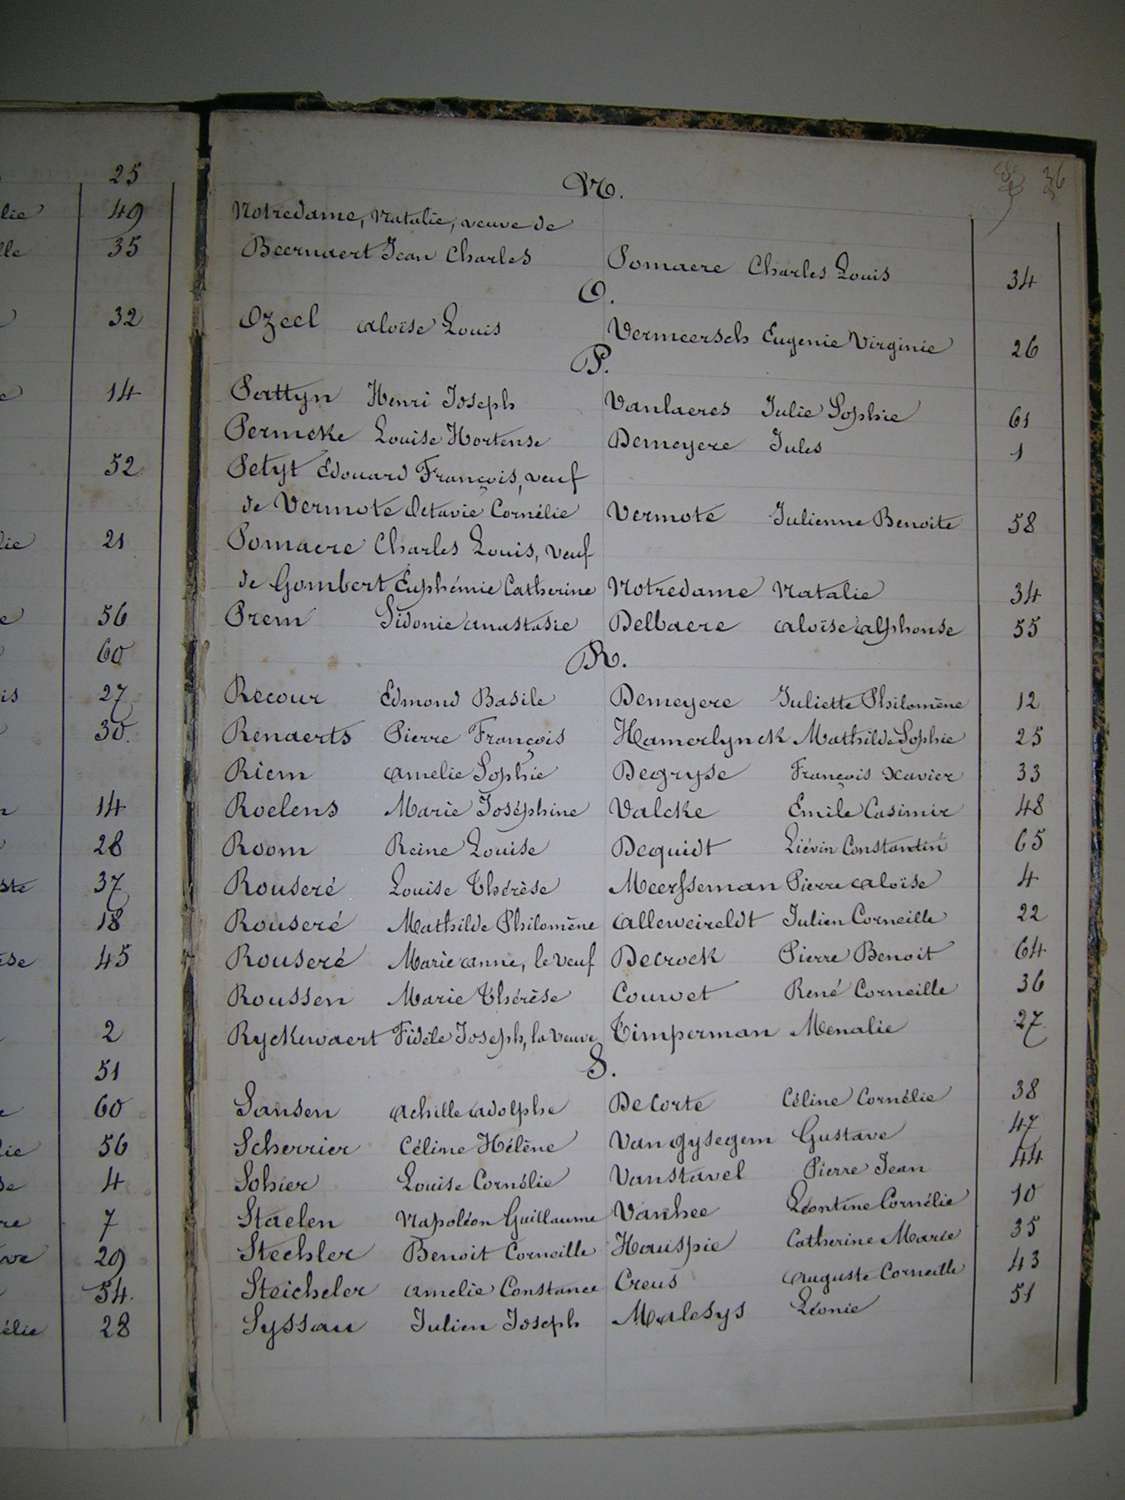 25
lie 49
lle 35
32
14
52
lie 21
56
60
is 27
30.
14
28
37
18
45
2
51
60
lie 56
4
re 7
29
54.
élie 28
36
N.
Notredame, Natalie, veuve de
Beernaert Jean Charles Pomaere Charles Louis 34
O.
Ozeel Aloïse Louis Vermeersch Eugenie Virginie 26
P.
Pattyn Henri Joseph Vanlaeres Julie Sophie 61
Permeke Louise Hortense Demeyere Jules 1
Petyt Edouard François, veuf
de Vermote Octavie Cornélie Vermote Julienne Benoite 58
Pomaere Charles Louis, veuf
de Gombert Euphémie Catherine Notredame Natalie 34
Prem Sidonie Anastasie Delbaere Aloïse Alphonse 55
R.
Recour Edmond Basile Demeyere Juliette Philomène 12
Renaerts Pierre François Hamerlynck Mathilde Sophie 25
Riem Amelie Sophie Degryse François Xavier 33
Roelens Marie Joséphine Valcke Emile Casimir 48
Room Reine Louise Dequidt Liévin Constantin 65
Rouseré Louise Thérèse Meersseman Pierre Aloïse 4
Rouseré Mathilde Philomène Alleweireldt Julien Corneille 22
Rouseré Marie Anne, le veuf Decrock Pierre Benoit 64
Roussen Marie Thérèse Couvet René Corneille 36
Ryckewaert Fidèle Joseph, la veuve Timperman Menalie 27
S.
Sansen Achille Adolphe De Corte Céline Cornélie 38
Scherrier Céline Hélène Van Gysegem Gustave 47
Sohier Louise Cornélie Vanstavel Pierre Jean 44
Staelen Napoléon Guillaume Vanhee Léontine Cornélie 10
Stechler Benoit Corneille Houspie Catherine Marie 35
Steicheler Amelie Constance Creus Auguste Corneille 43
Syssau Julien Joseph Malesys Léonie 51